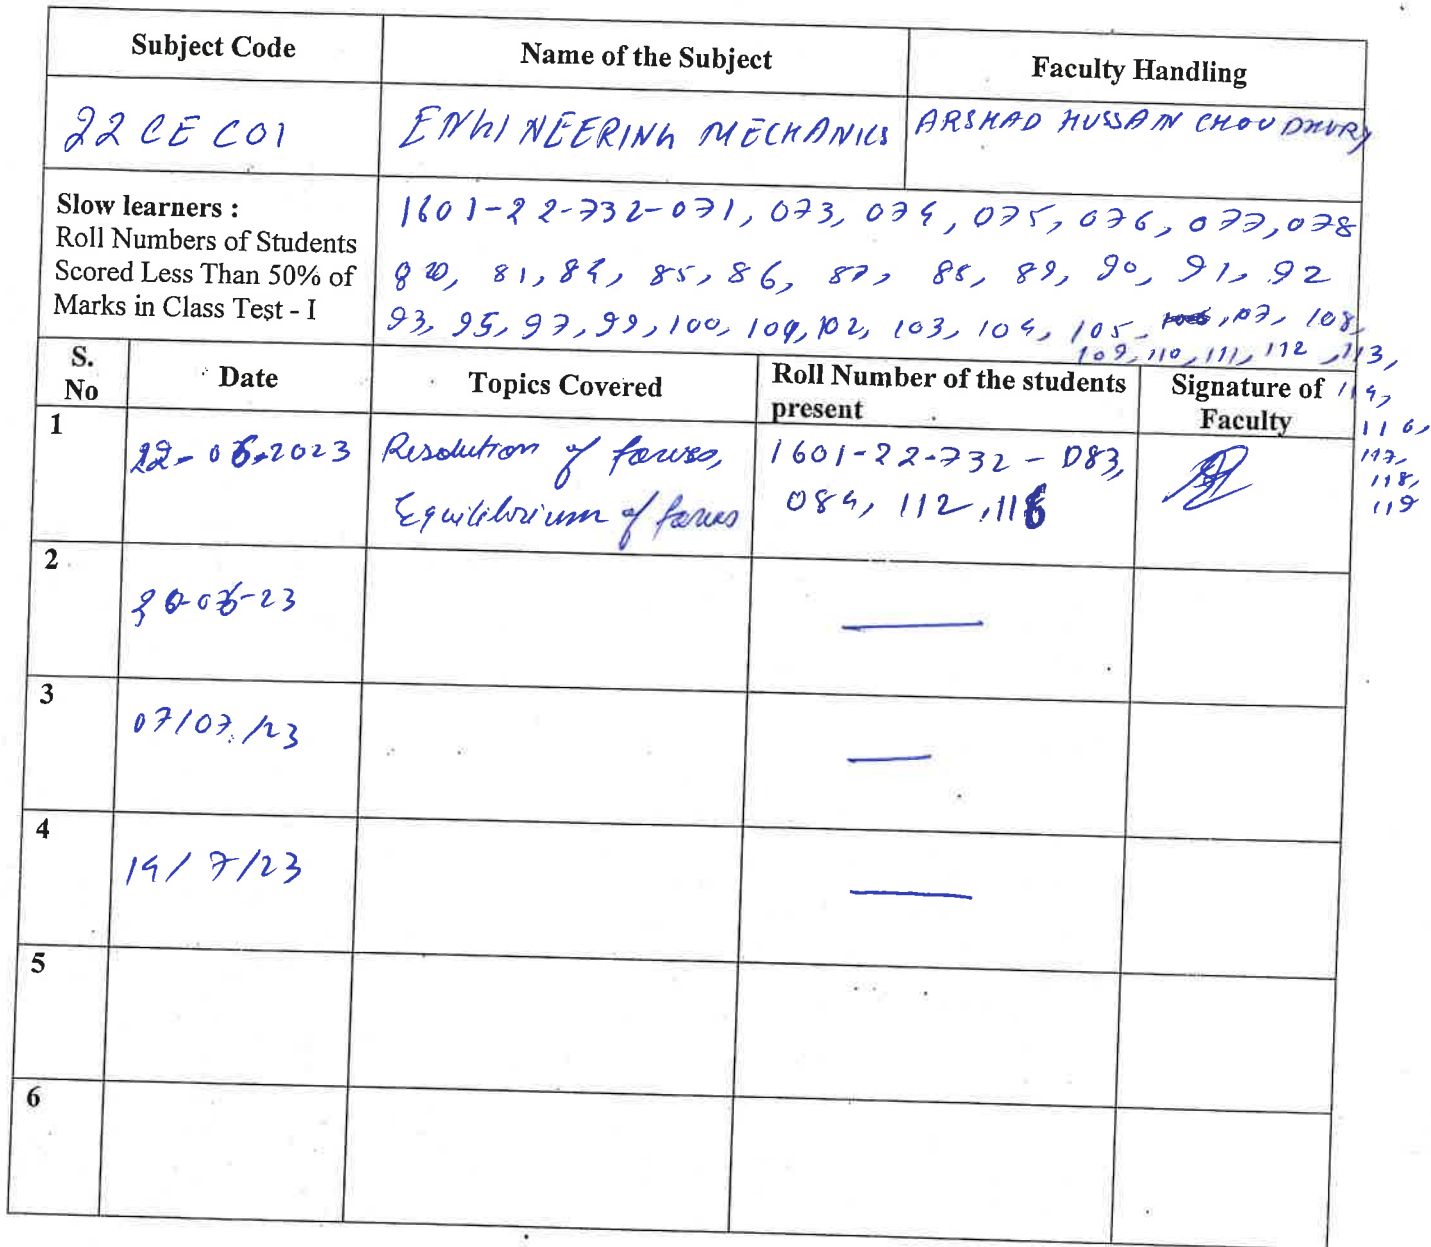 Subject Code
Name of the Subject
Faculty Handling
22CEC01
ENGINEERING MECHANICS
ARSHAD HUSSAIN CHOUDHURY
Slow learners :
Roll Numbers of Students
Scored Less Than 50% of
Marks in Class Test - I
1601-22-732-071, 073, 074, 075, 076, 077, 078
80, 81, 84, 85, 86, 87, 88, 89, 90, 91, 92
93, 95, 97, 99, 100, 101, 102, 103, 104, 105, 107, 108,
109, 110, 111, 112, 113,
114,
116,
117,
118,
119
S. No
Date
Topics Covered
Roll Number of the students present
Signature of Faculty
1
22-06-2023
Resolution of forces,
Equilibrium of forces
1601-22-732-083,
084, 112, 118
2
30-06-23
3
07/07/23
4
14/7/23
5
6